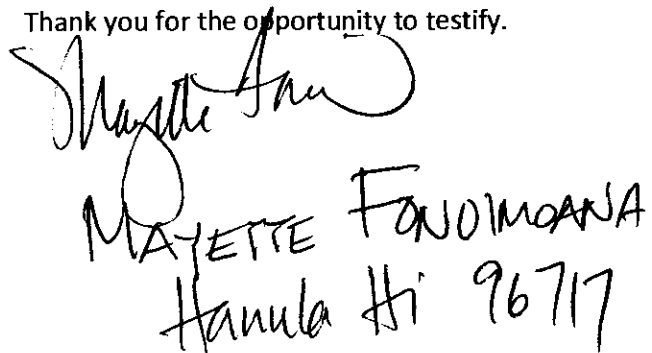 Thank you for the opportunity to testify.
MAYETTE FONOIMOANA
Hauula Hi 96717